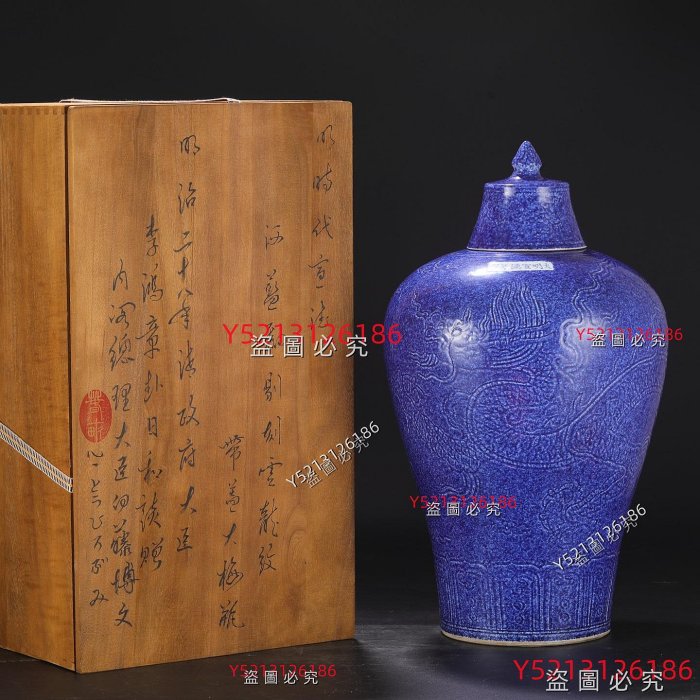 明時代宣德
洒藍釉剔刻雲龍紋
帶蓋大梅瓶
明治二十八年清政府大臣
李鴻章赴日和談贈
内阁總理大臣伊藤博文
Y5213126186
盜圖必究
Y5213126186
盜圖必究
Y5213126186
盜圖必究
Y5213126186
盜圖必究
Y5213126186
盜圖必究
Y5213126186
盜圖必究
Y5213126186
盜圖必究